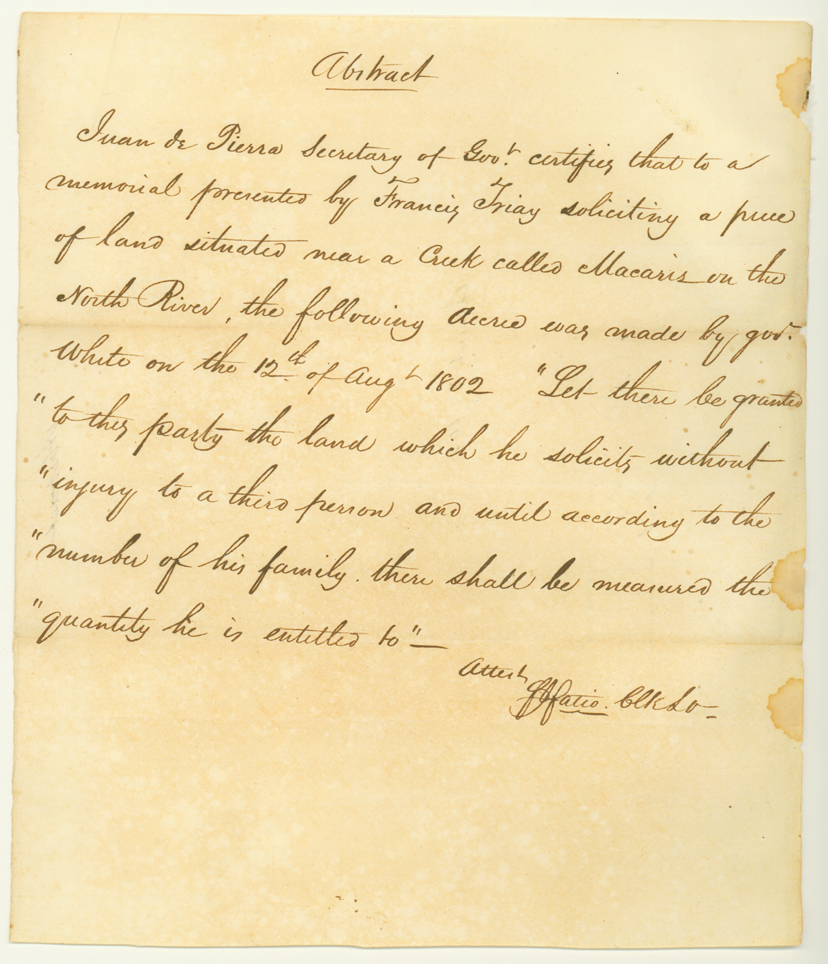 Abstract
Juan de Pierra Secretary of Govt. certifies that to a
memorial presented by Francis Triay soliciting a piece
of land situated near a Creek called Macaris on the
North River, the following decree was made by gov.
White on the 12th of Augt 1802 "Let there be granted
"to this party the land which he solicits without
"injury to a third person and until according to the
"number of his family. there shall be measured the
"quantity he is entitled to"—
Attest
Fatio. Clk